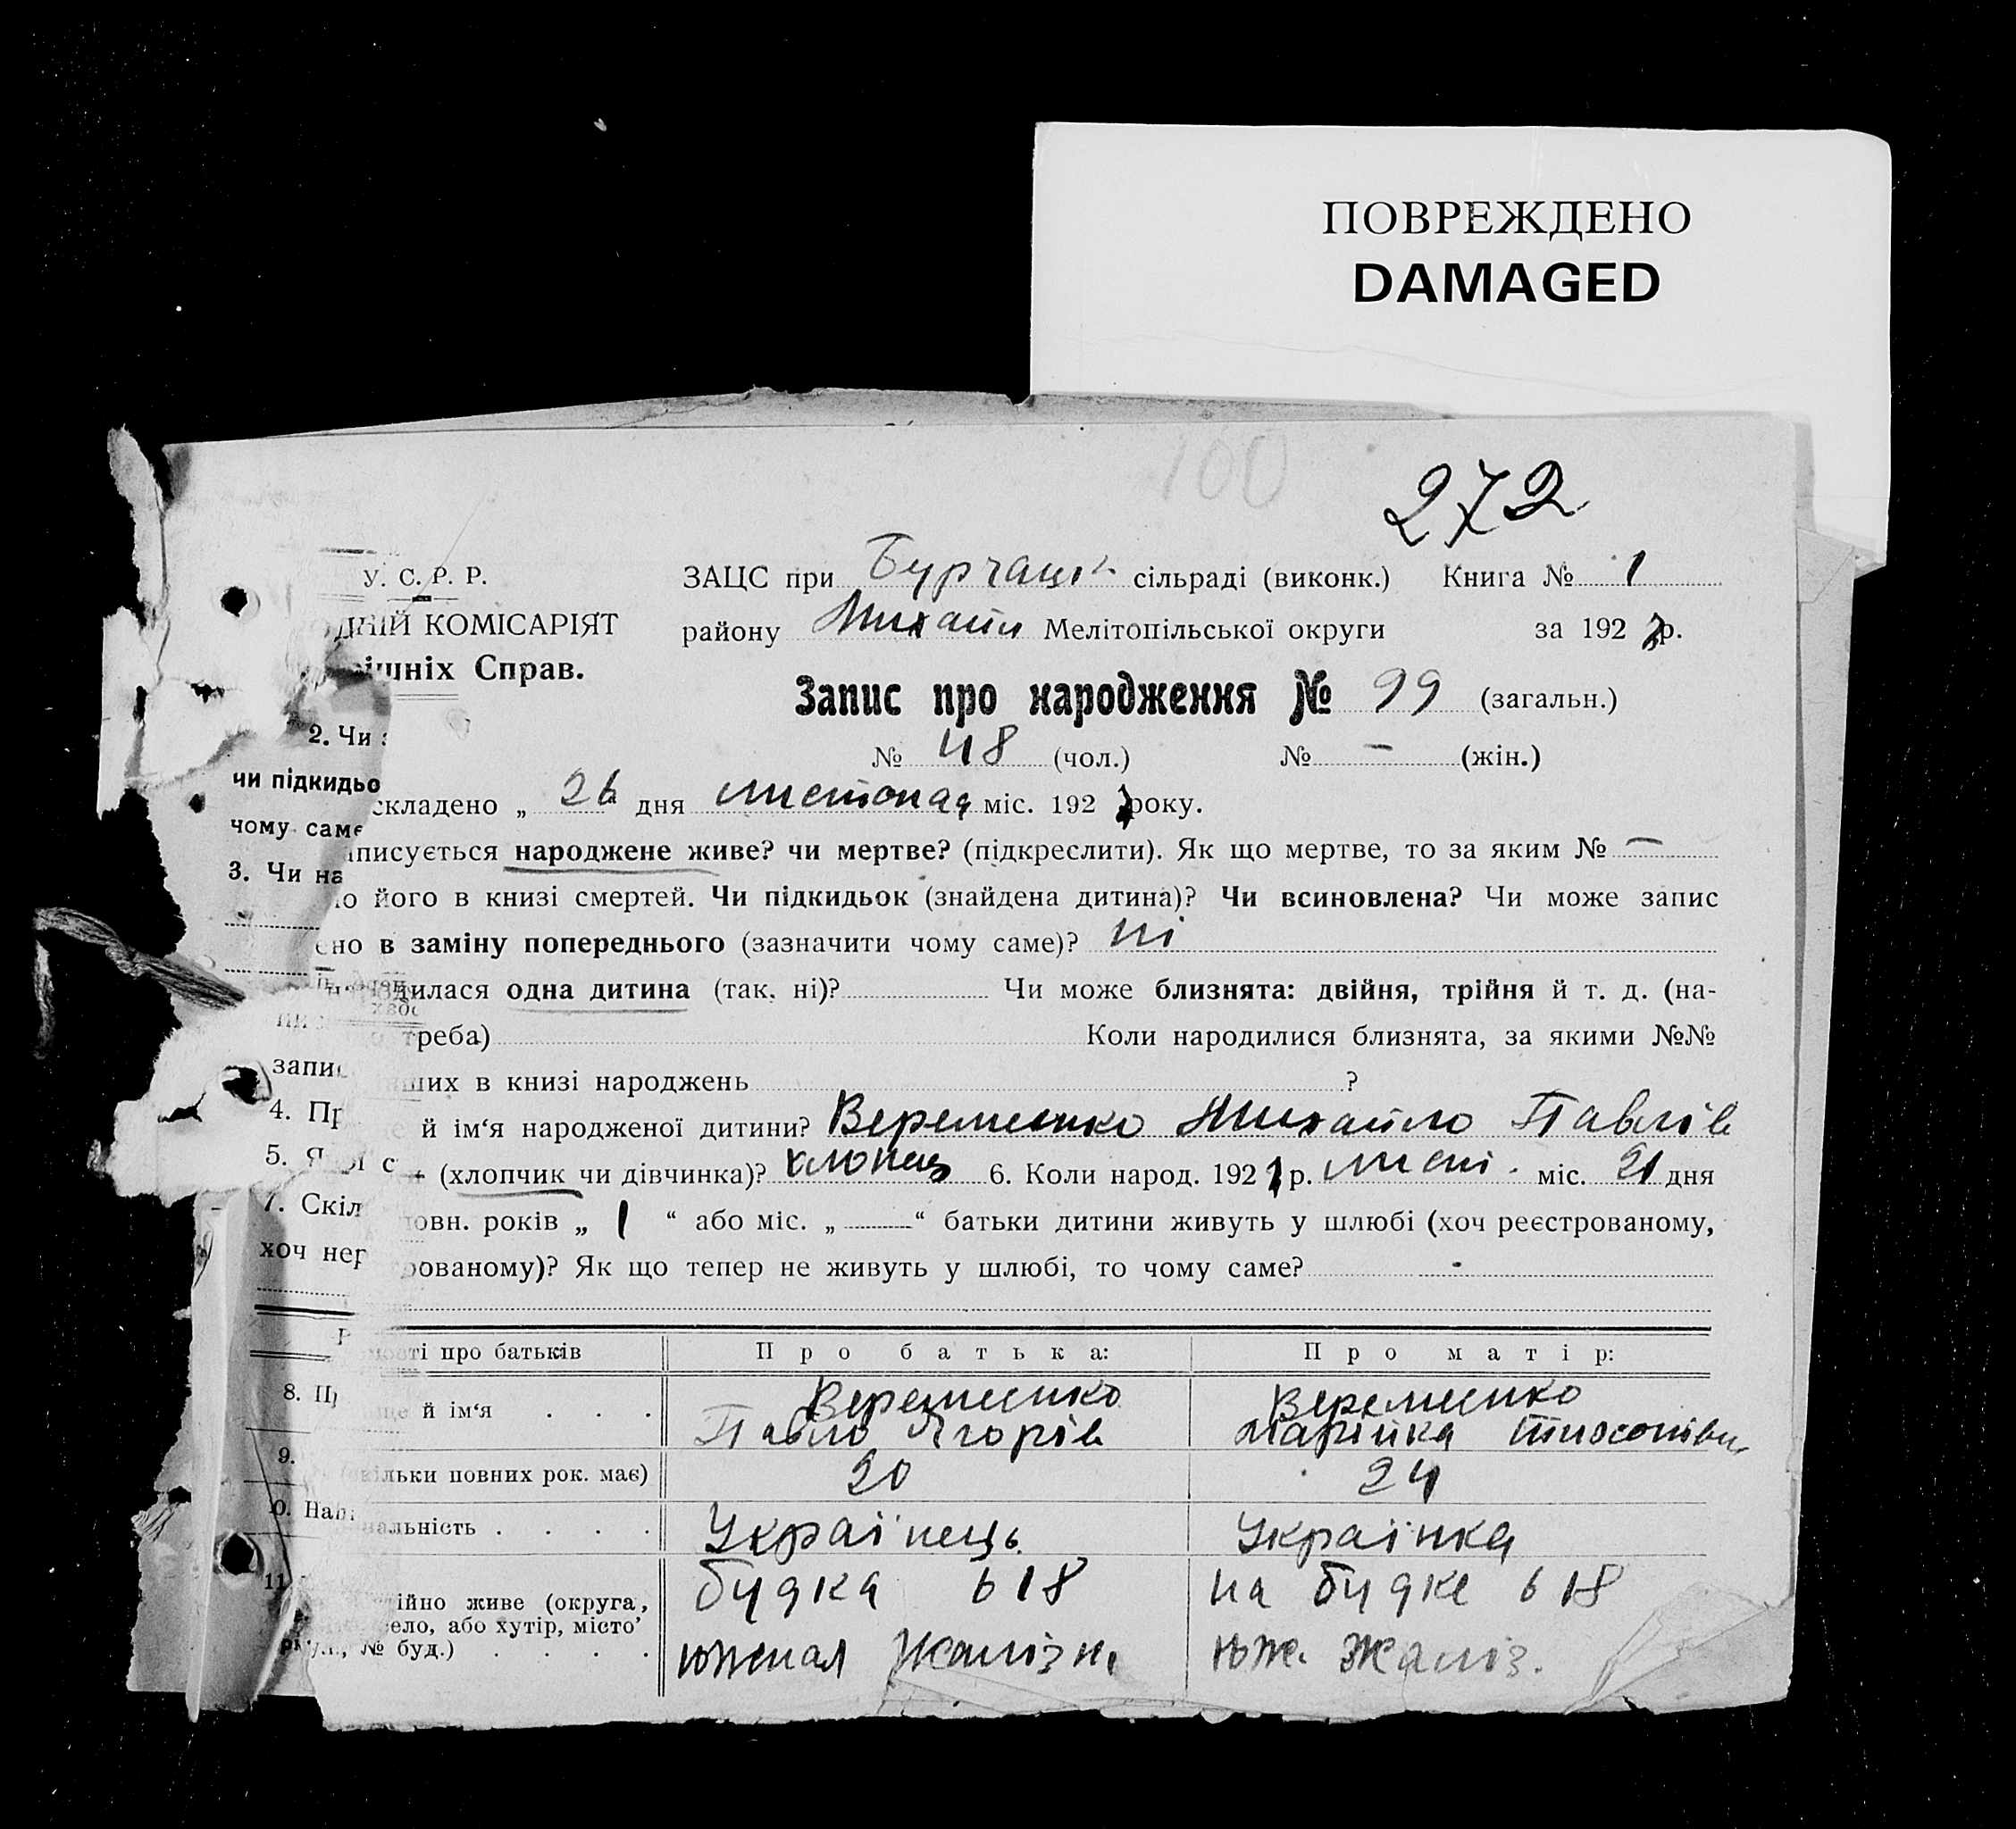 ПОВРЕЖДЕНО
DAMAGED
100
272
У. С. Р. Р.
ЗАЦС при Бурчацк сільраді (виконк.) Книга № 1
КОМІСАРІЯТ
району Михайл Мелітопільської округи за 192 р.
Справ.
Запис про народження № 99 (загальн.)
2. Чи
№ 48 (чол.) № — (жін.)
чи підкидьо
складено „ 26 дня листопад міс. 192 року.
чому саме
писується народжене живе? чи мертве? (підкреслити). Як що мертве, то за яким № —
3. Чи на
його в книзі смертей. Чи підкидьок (знайдена дитина)? Чи всиновлена? Чи може запис
ено в заміну попереднього (зазначити чому саме)? ні
дилася одна дитина (так, ні)? Чи може близнята: двійня, трійня й т. д. (на-
треба) Коли народилися близнята, за якими №№
запис
інших в книзі народжень ?
4. Пр
й ім‘я народженої дитини? Веременко Михайло Павлів
5. (хлопчик чи дівчинка)? хлопець 6. Коли народ. 192 р. лист. міс. 21 дня
7. Скіл
повн. років „ 1 “ або міс. „ “ батьки дитини живуть у шлюбі (хоч реєстрованому,
хоч нер
рованому)? Як що тепер не живуть у шлюбі, то чому саме? -
про батьків Про батька: Про матір:
8. й ім‘я . . . Веременко Веременко
Павло Ягорів Марійка
9. (скільки повних рок. має) 20 24
0. Нац
нальність . . . . Українець Українка
11.
ійно живе (округа, будка 618 на будке 618
село, або хутір, місто’
№ буд.) . . . . южная Жалізн. юж. Жаліз.